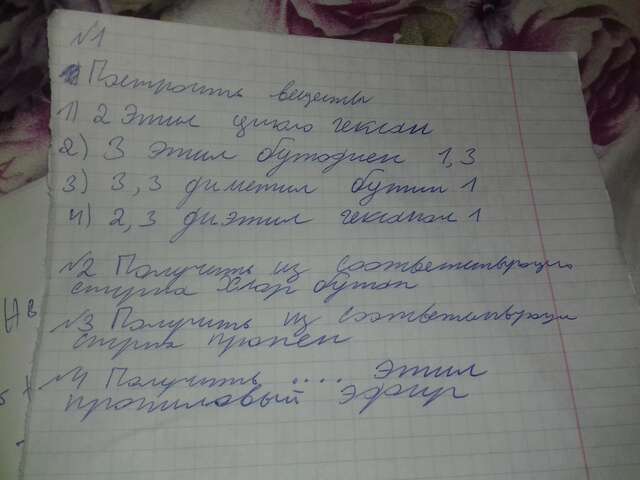 №1
Построить веществы
1) 2 этил цикло гексан
2) 3 этил бутадиен 1,3
3) 3,3 диметил бутин 1
4) 2,3 диэтил гексанол 1
№2 Получить из соответствующего
спирта хлор бутан
№3 Получить из соответствующего
спирта пропен
№4 Получить .... этил
пропиловый эфир